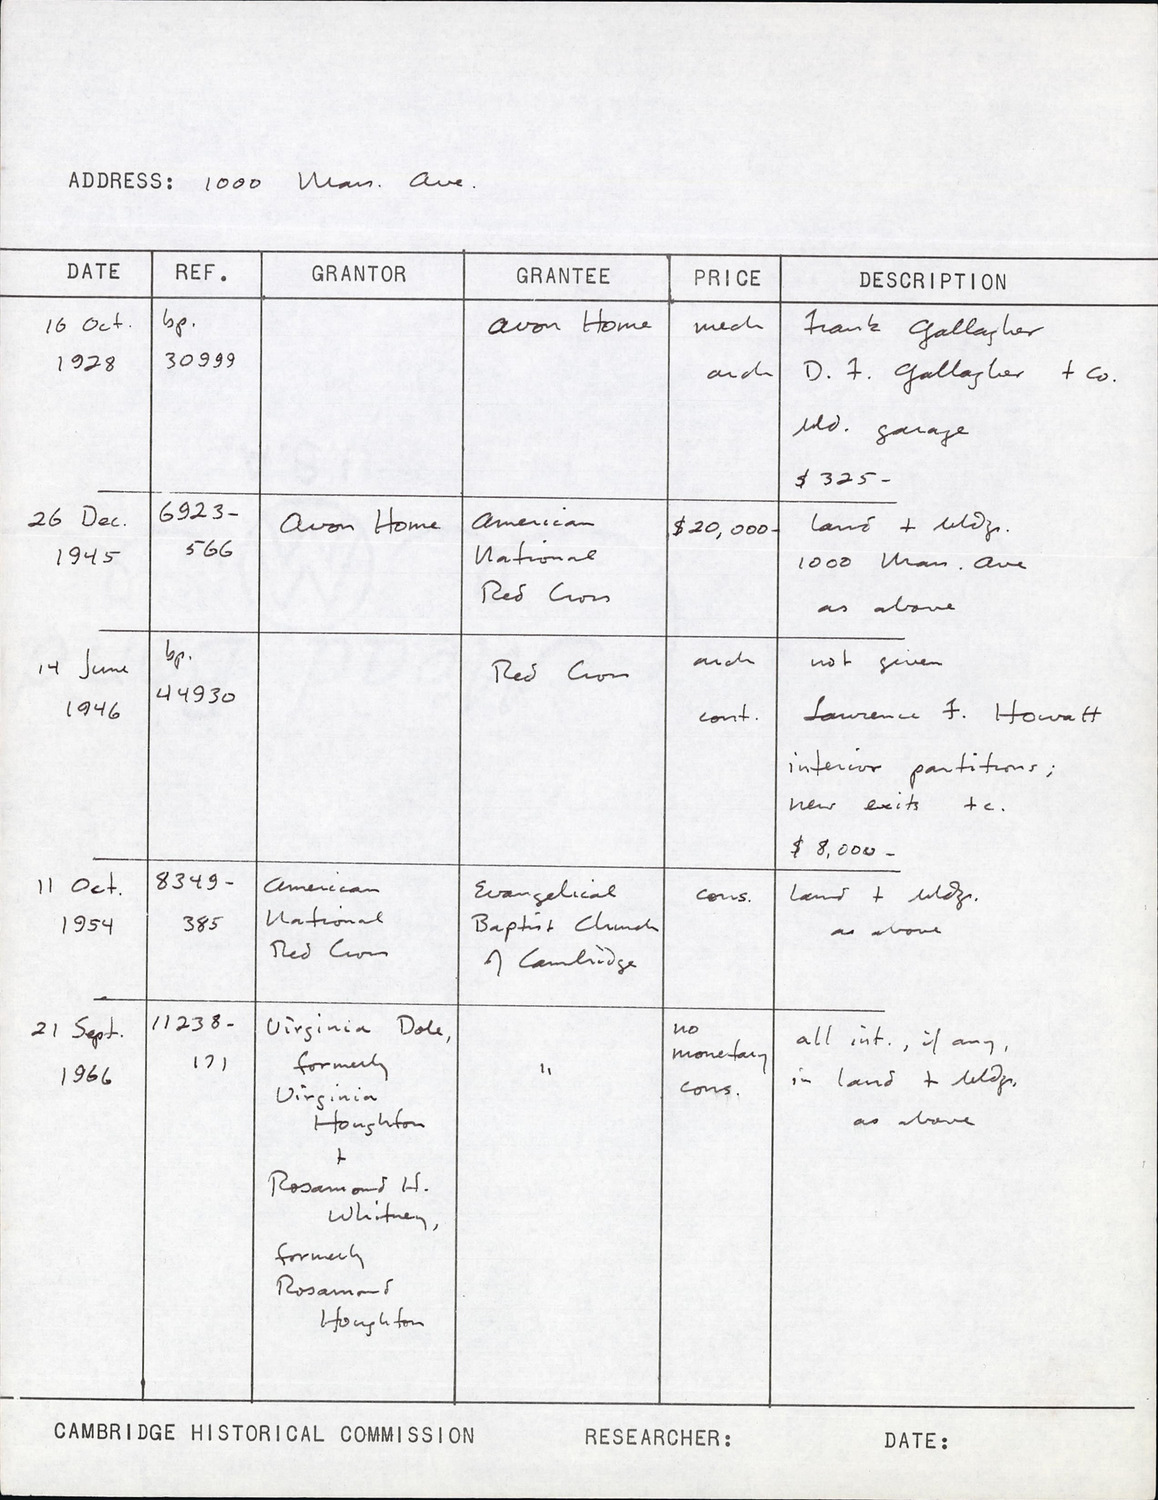 ADDRESS: 1000 Mass. Ave.
DATE REF. GRANTOR GRANTEE PRICE DESCRIPTION
16 Oct. bp. Avon Home mech Frank Gallagher
1928 30999 arch D. F. Gallagher + Co.
bld. garage
$ 325-
26 Dec. 6923- Avon Home American $20,000- land + bldgs.
1945 566 National 1000 Mass. Ave
Red Cross as above
14 June bp. Red Cross arch not given
1946 44930 cont. Lawrence F. Howatt
interior partitions;
new exits tc.
$ 8,000-
11 Oct. 8349- American Evangelical cons. land + bldgs.
1954 385 National Baptist Church as above
Red Cross of Cambridge
21 Sept. 11238- Virginia Dole, " no all int., if any,
1966 171 formerly monetary in land + bldgs.
Virginia cons. as above
Houghton
+
Rosamond H.
Whitney,
formerly
Rosamond
Houghton
CAMBRIDGE HISTORICAL COMMISSION RESEARCHER: DATE: